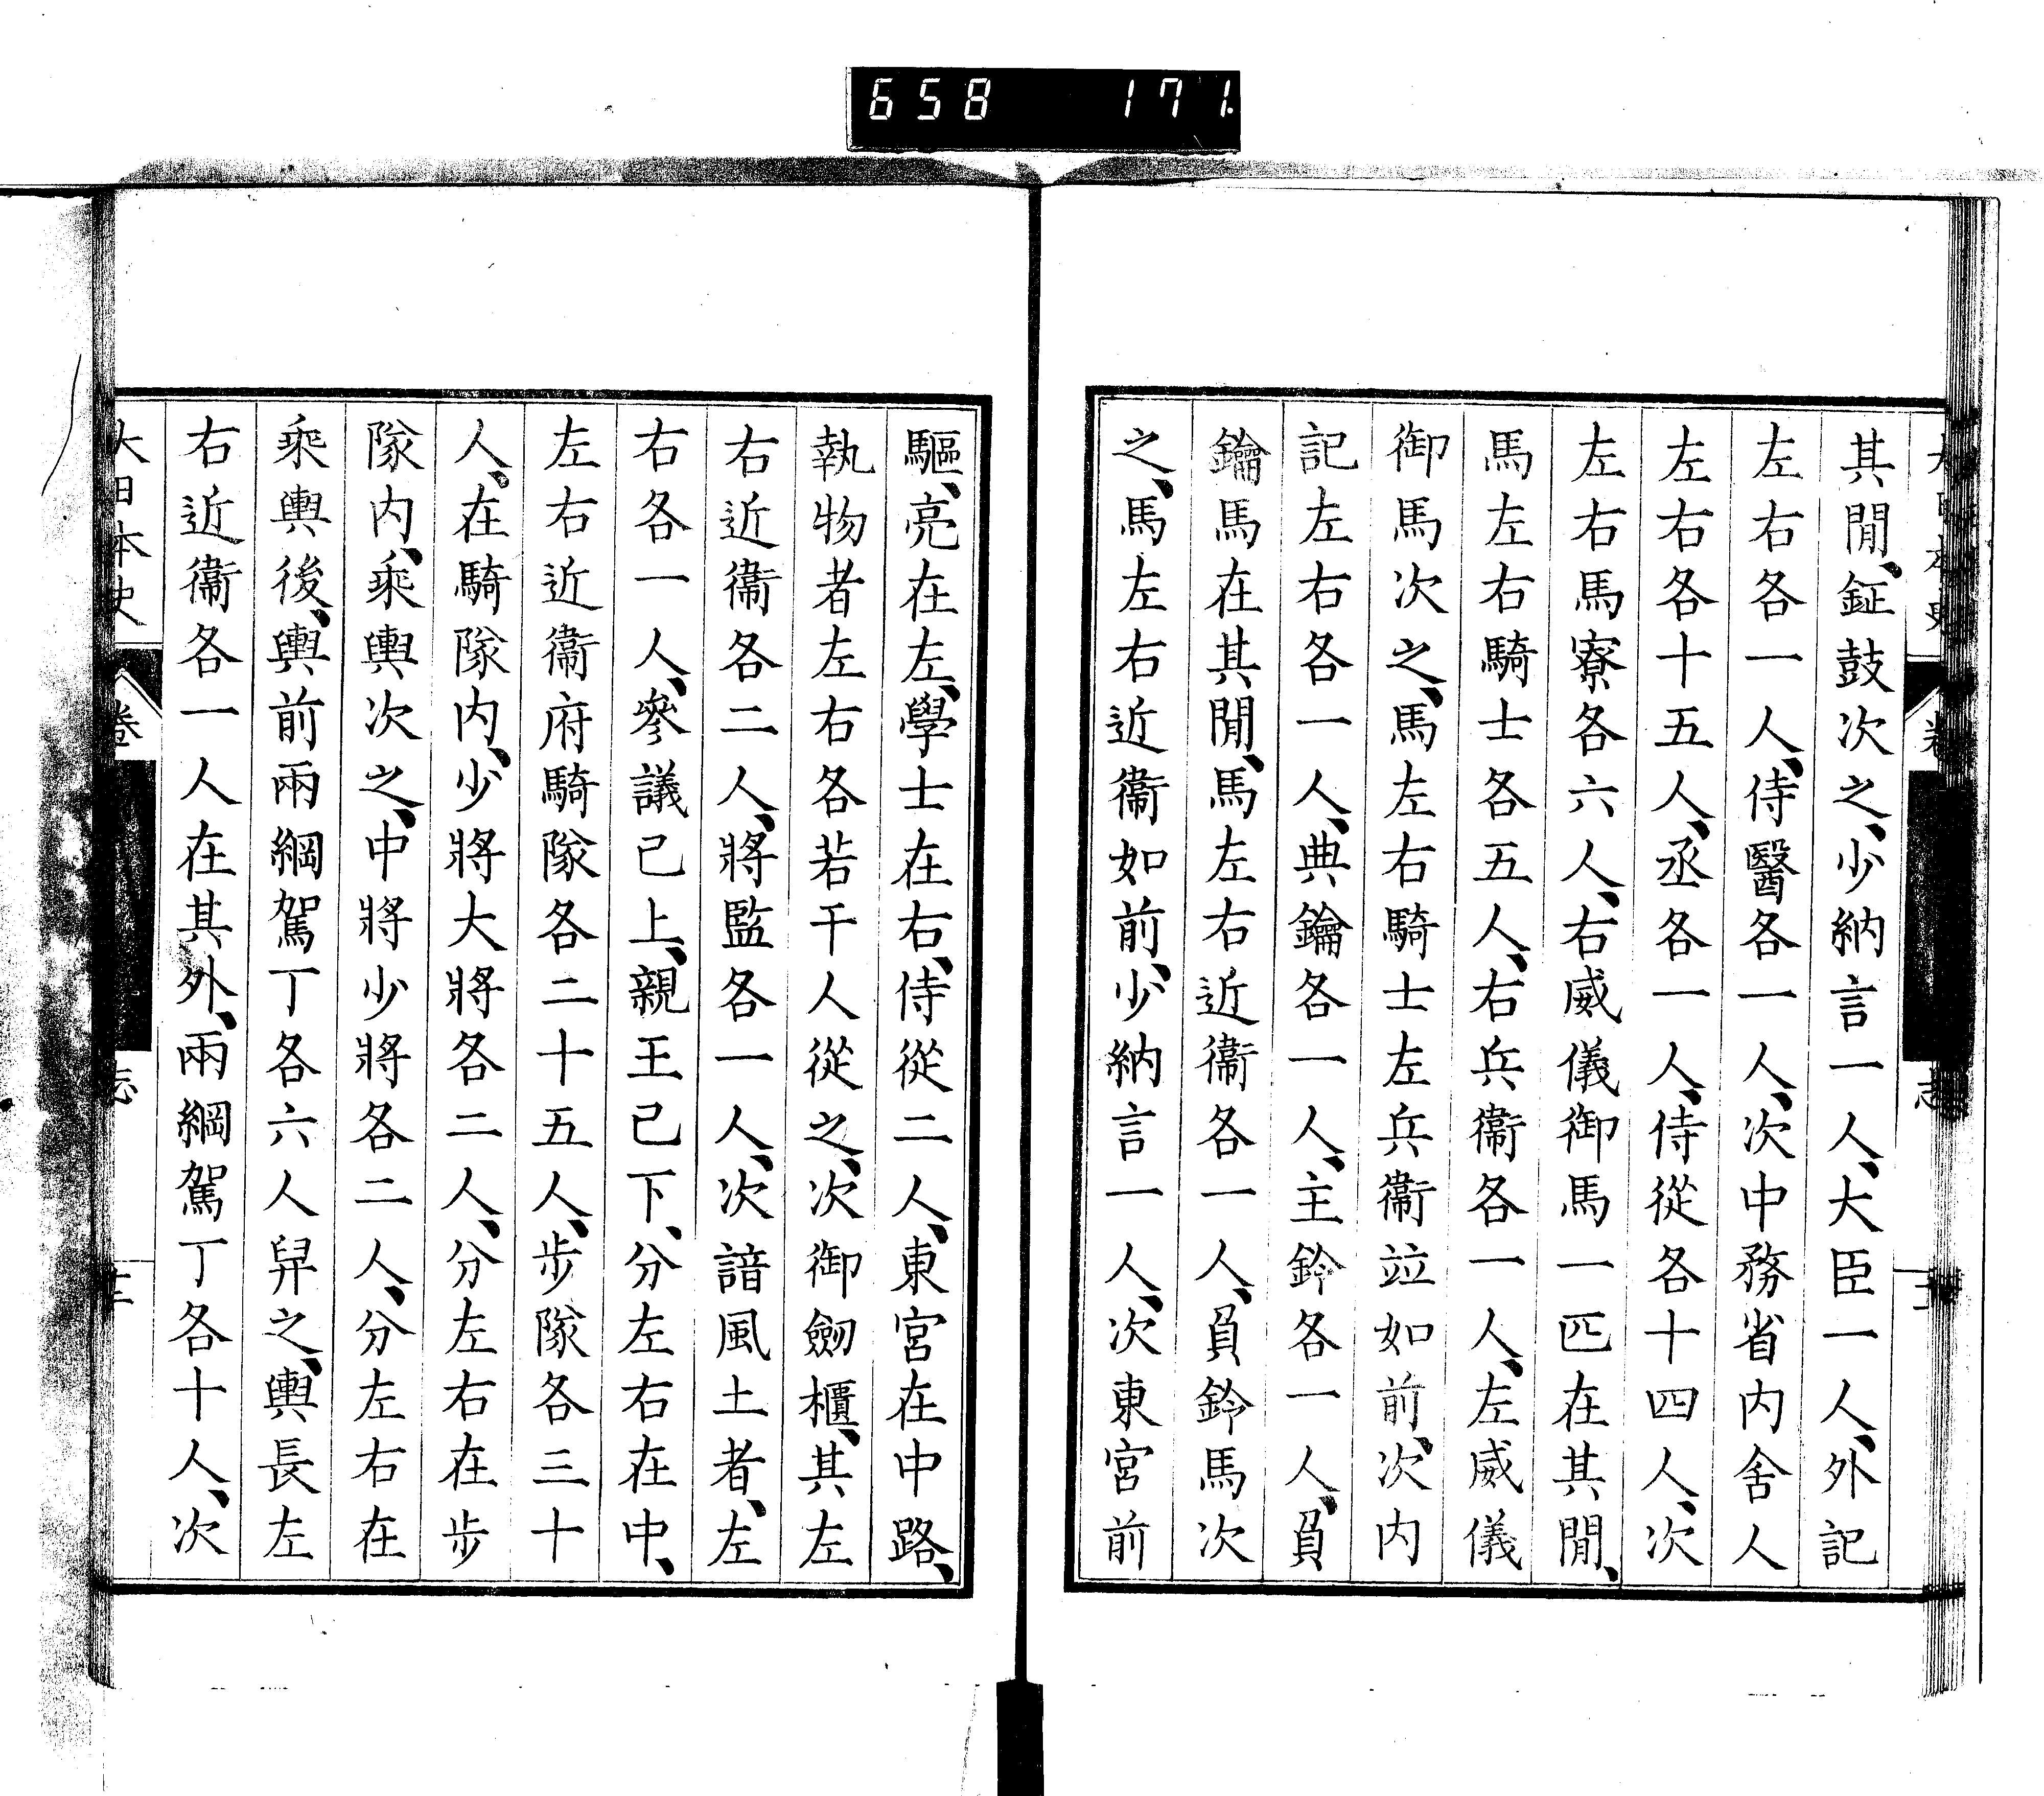 658 171
其閒、鉦鼓次之、少納言一人、大臣一人、外記
左右各一人、侍醫各一人、次中務省内舍人
左右各十五人、丞各一人、侍從各十四人、次
左右馬寮各六人、右威儀御馬一匹在其閒、
馬左右騎士各五人、右兵衞各一人、左威儀
御馬次之、馬左右騎士左兵衞竝如前、次内
記左右各一人、典鑰各一人、主鈴各一人、負
鑰馬在其閒、馬左右近衞各一人、負鈴馬次
之、馬左右近衞如前、少納言一人、次東宮前
驅、亮在左、學士在右、侍從二人、東宮在中路、
執物者左右各若干人從之、次御劒櫃、其左
右近衞各二人、將監各一人、次諳風土者、左
右各一人、參議已上、親王已下、分左右在中、
左右近衞府騎隊各二十五人、步隊各三十
人、在騎隊内、少將大將各二人、分左右在步
隊内、乘輿次之、中將少將各二人、分左右在
乘輿後、輿前兩綱駕丁各六人舁之、輿長左
右近衞各一人在其外、兩綱駕丁各十人、次
大日本史 卷 志